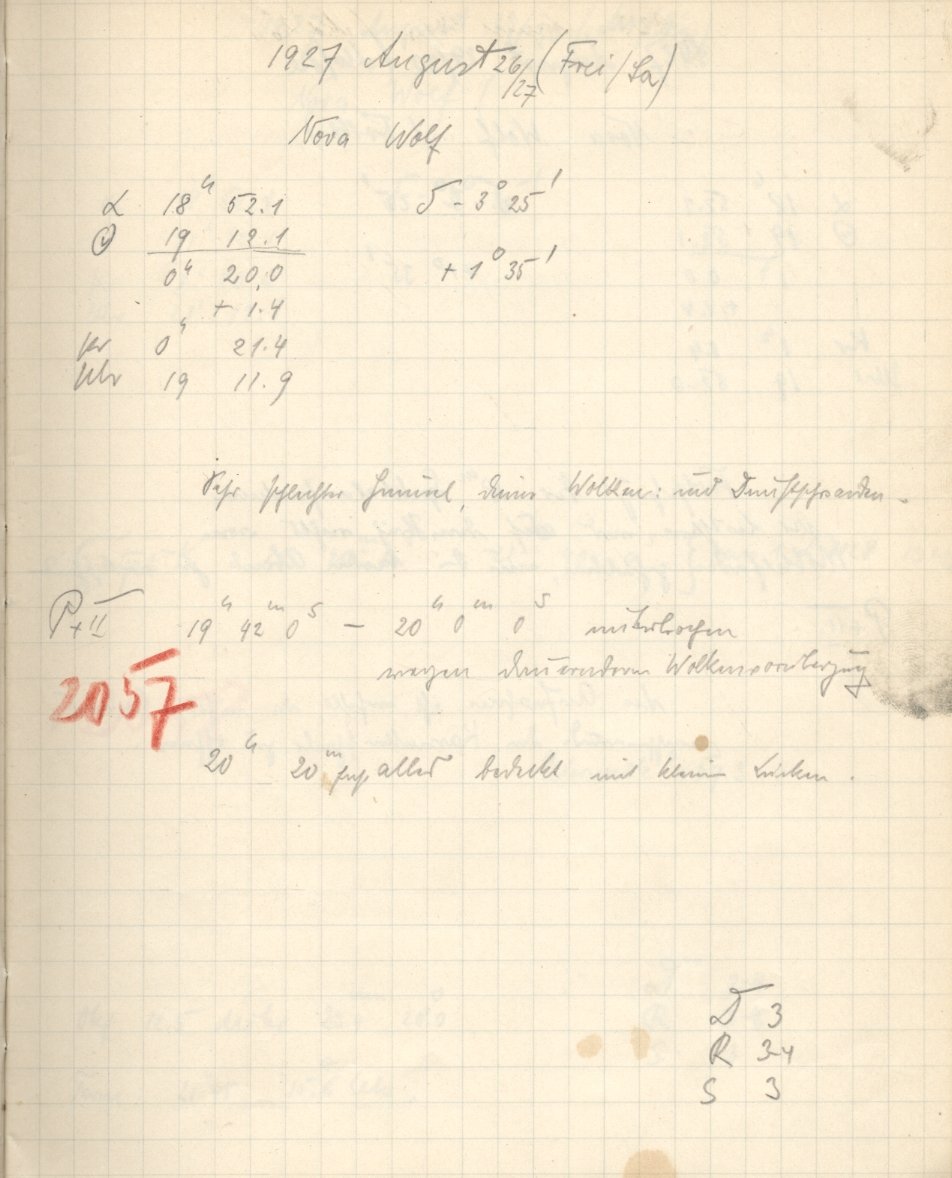 1927 August 26/27 (Frei/Sa)
Nova Wolf
α 18h 52.1 δ - 3° 25'
☉ 19 12.1
0h 20,0 + 1° 35'
+ 1.4
Kr 0h 21.4
Uhr 19 11.9
Sehr schlechter Himmel, Wolken: und Dunstschwaden.
P+II 19h 42m 0s — 20h 0m 0s unterbrochen
wegen dauerndem Wolkenvorüberzug
2057
20h 20m fast alles bedeckt mit kleinen Lücken.
D 3
R 3-4
S 3